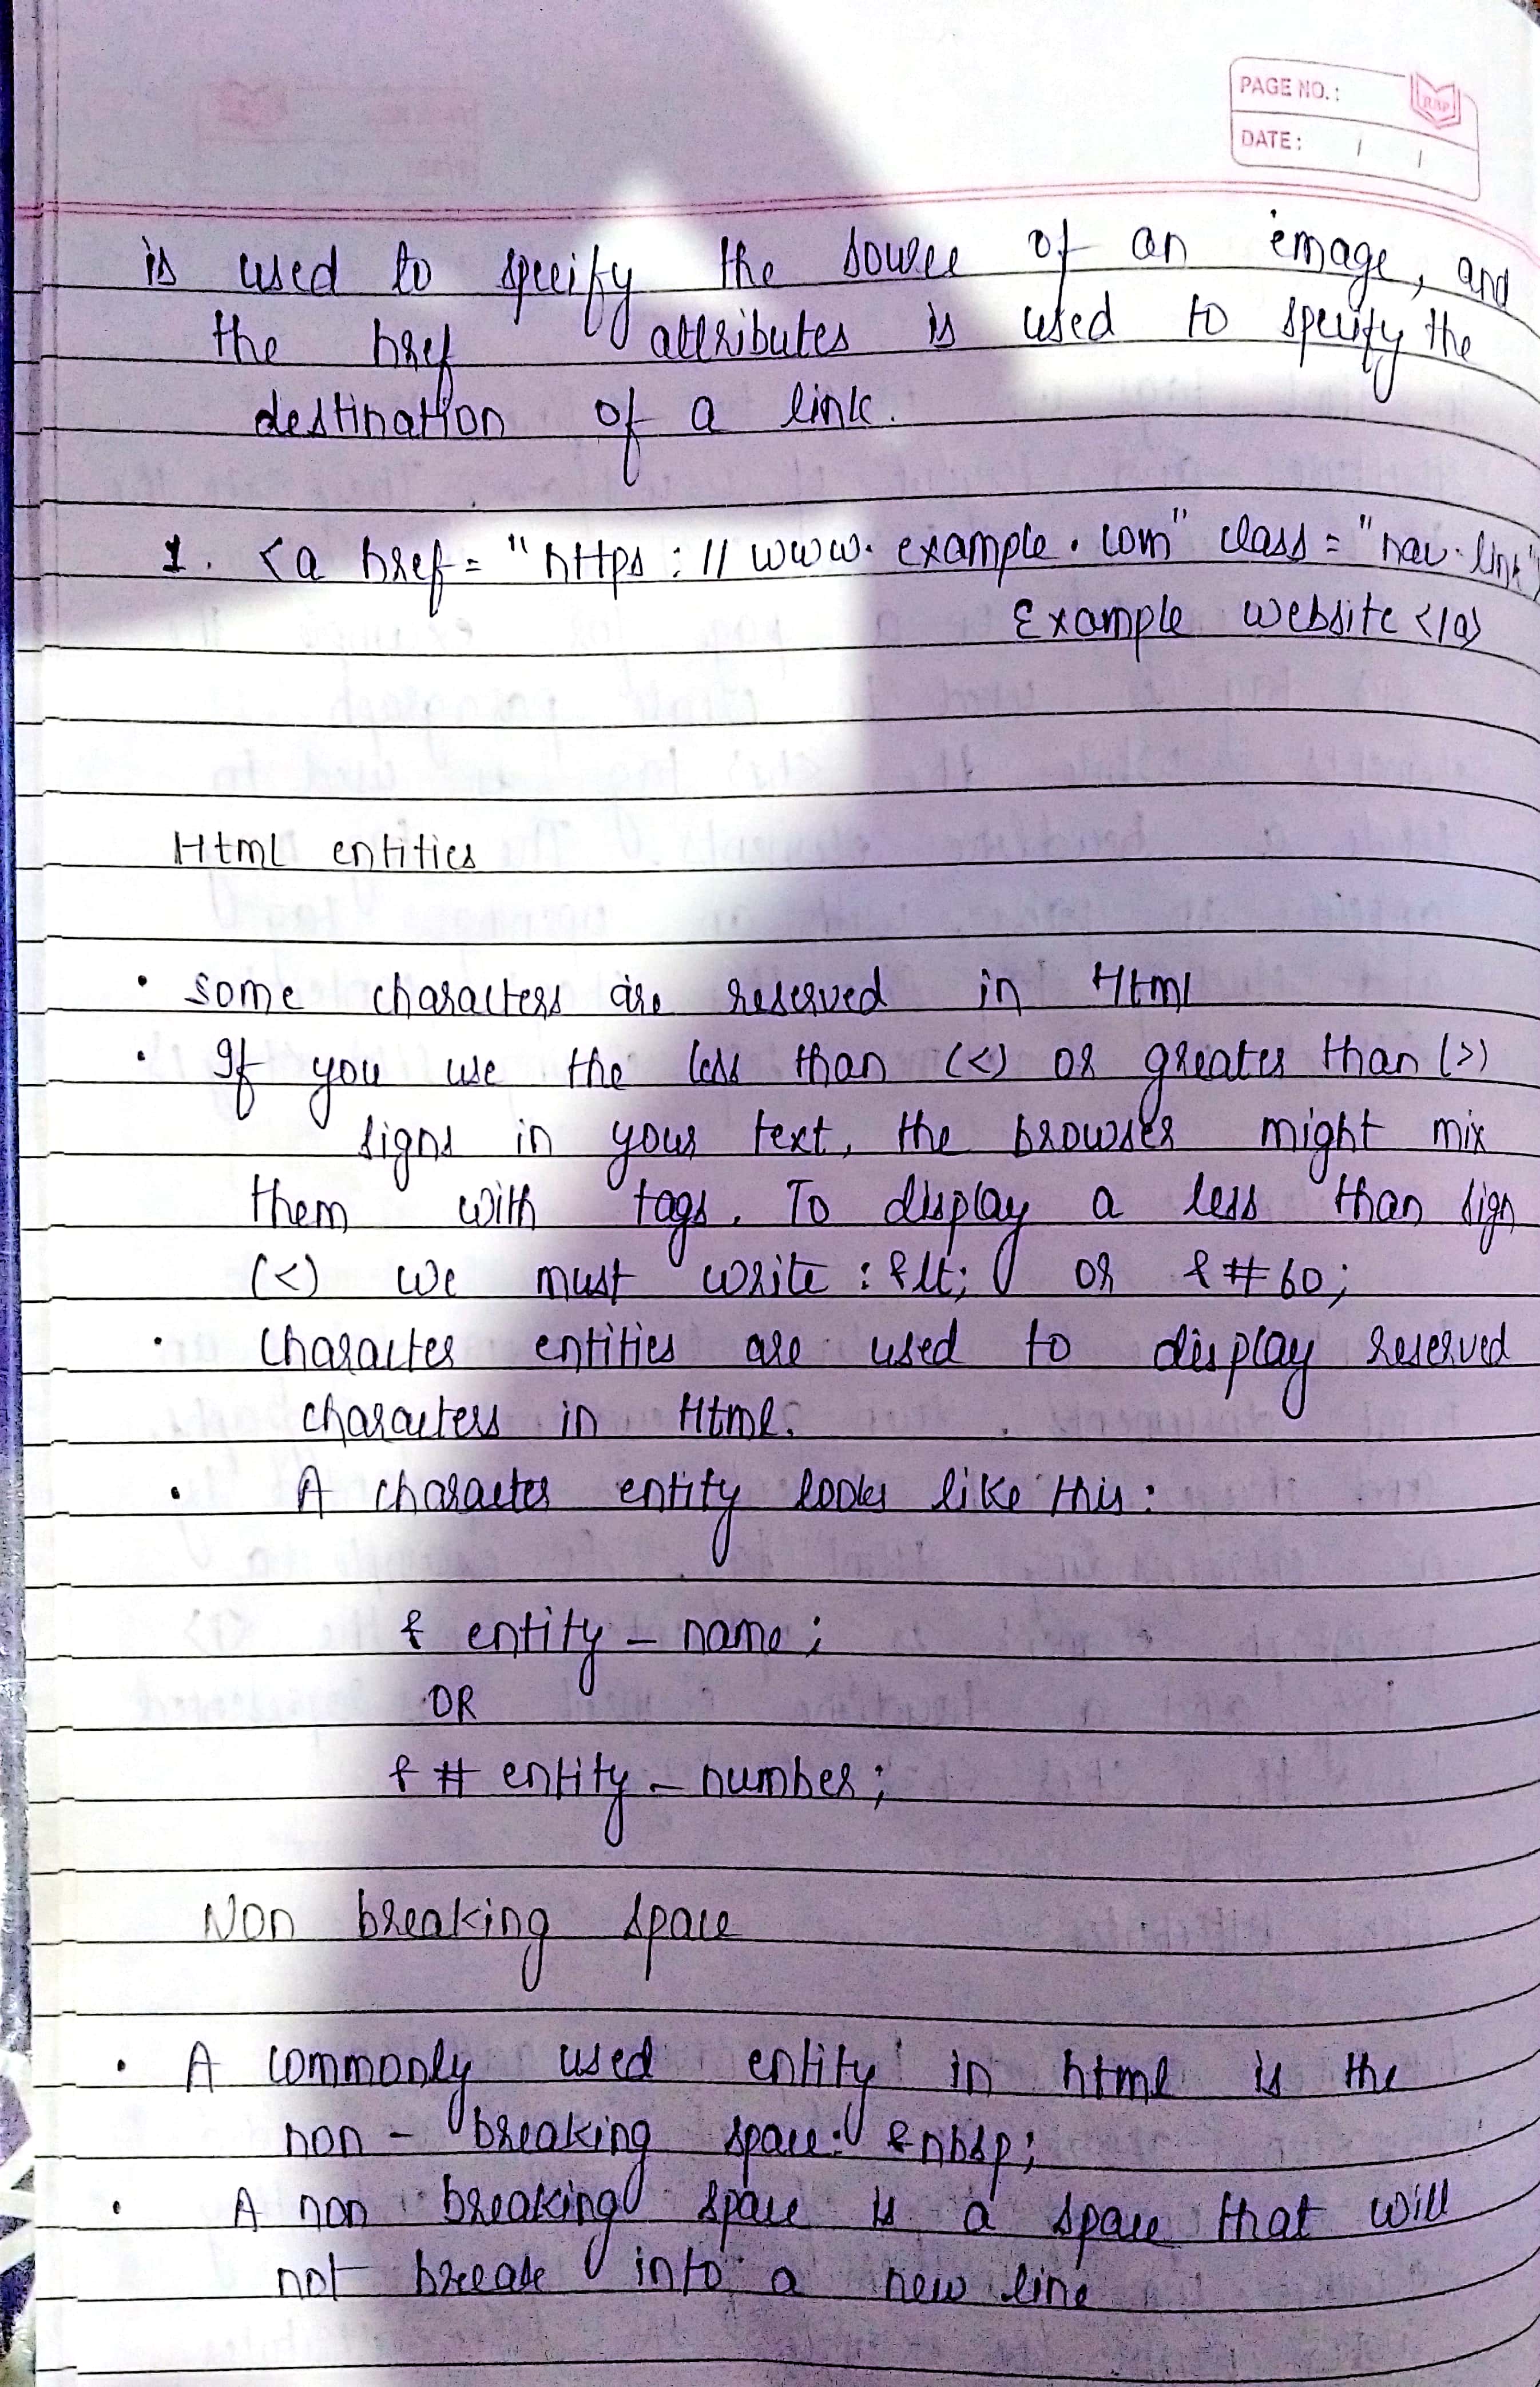 PAGE NO.:
DATE: / /
is used to specify the source of an image, and
the href attributes is used to specify the
destination of a link.
1. <a href = "https://www.example.com" class = "nav-link">
Example website </a>
Html entities
• Some characters are reserved in Html
• If you use the less than (<) or greater than (>)
signs in your text, the browser might mix
them with tags. To display a less than sign
(<) we must write : &lt; or &#60;
• Character entities are used to display reserved
characters in Html.
• A character entity looks like this:
& entity_name;
OR
& # entity_number;
Non breaking space
• A commonly used entity in html is the
non-breaking space: &nbsp;
• A non breaking space is a space that will
not break into a new line